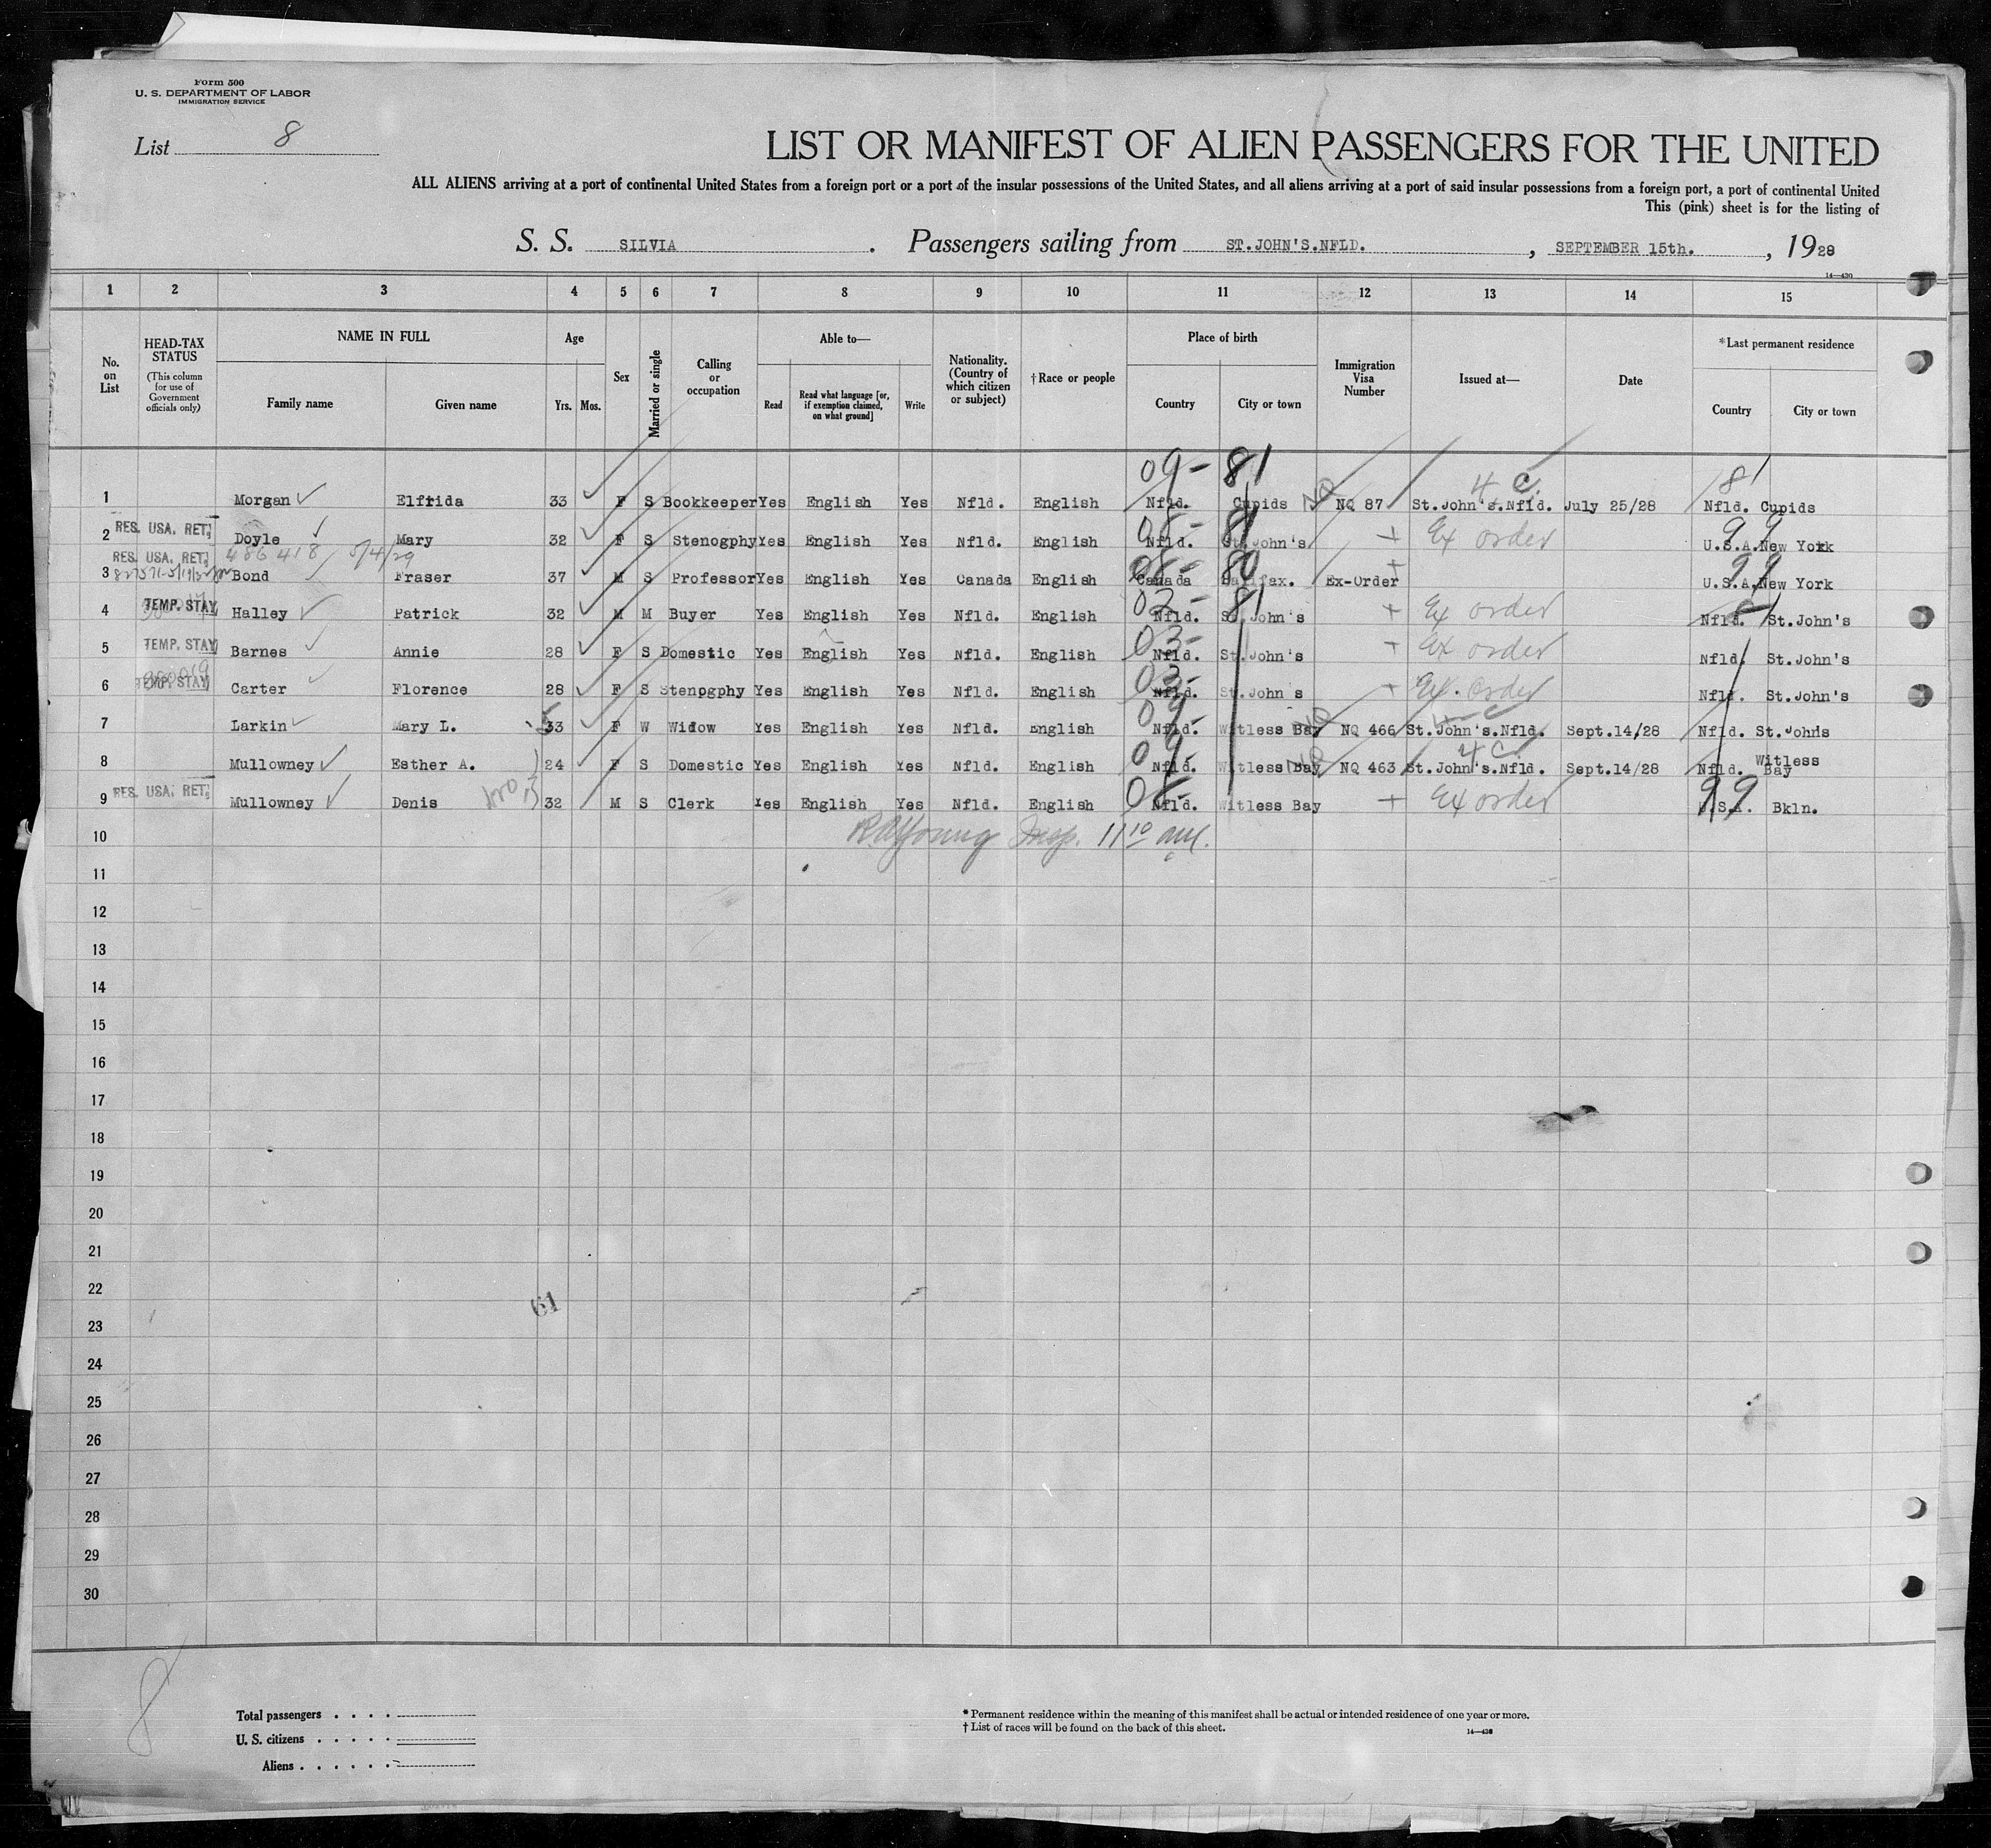 Form 500
U. S. DEPARTMENT OF LABOR
IMMIGRATION SERVICE
List 8
LIST OR MANIFEST OF ALIEN PASSENGERS FOR THE UNITED
ALL ALIENS arriving at a port of continental United States from a foreign port or a port of the insular possessions of the United States, and all aliens arriving at a port of said insular possessions from a foreign port, a port of continental United
This (pink) sheet is for the listing of
S. S. SILVIA. Passengers sailing from ST.JOHN'S.NFLD., SEPTEMBER 15th., 1928
14—430
1 2 3 4 5 6 7 8 9 10 11 12 13 14 15
No. on List
HEAD-TAX STATUS (This column for use of Government officials only)
NAME IN FULL
Family name Given name
Age
Yrs. Mos.
Sex
Married or single
Calling or occupation
Able to—
Read Read what language [or, if exemption claimed, on what ground] Write
Nationality. (Country of which citizen or subject)
†Race or people
Place of birth
Country City or town
Immigration Visa Number
Issued at—
Date
*Last permanent residence
Country City or town
09- 81 4 C. 81
1 Morgan Elfrida 33 F S Bookkeeper Yes English Yes Nfld. English Nfld. Cupids NQ 87 St.John's.Nfld. July 25/28 Nfld. Cupids
2 RES. USA. RET; Doyle Mary 32 F S Stenogphy Yes English Yes Nfld. English Nfld. St.John's Ex order 99 U.S.A. New York
486418 5/4/29
3 RES. USA. RET; Bond Fraser 37 M S Professor Yes English Yes Canada English Canada Halifax. Ex-Order 99 U.S.A. New York
4 TEMP. STAY Halley Patrick 32 M M Buyer Yes English Yes Nfld. English 02- 81 Nfld. St.John's Ex order Nfld. St.John's
5 TEMP. STAY Barnes Annie 28 F S Domestic Yes English Yes Nfld. English 03- Nfld. St.John's Ex order Nfld. St.John's
6 TEMP. STAY Carter Florence 28 F S Stenpgphy Yes English Yes Nfld. English 03- Nfld. St.John's Ex. order Nfld. St.John's
7 Larkin Mary L. 33 F W Widow Yes English Yes Nfld. English 09- Nfld. Witless Bay NQ 466 St.John's.Nfld. Sept.14/28 Nfld. St.Johns
8 Mullowney Esther A. 24 F S Domestic Yes English Yes Nfld. English 09- Nfld. Witless Bay NQ 463 4 C. St.John's.Nfld. Sept.14/28 Nfld. Witless Bay
9 RES. USA. RET; Mullowney Denis 32 M S Clerk Yes English Yes Nfld. English Nfld. Witless Bay Ex order 99 U.S.A. Bkln.
10 Insp. 11 10 am.
11
12
13
14
15
16
17
18
19
20
21
22
61
23
24
25
26
27
28
29
30
8
Total passengers
U. S. citizens
Aliens
* Permanent residence within the meaning of this manifest shall be actual or intended residence of one year or more.
† List of races will be found on the back of this sheet.